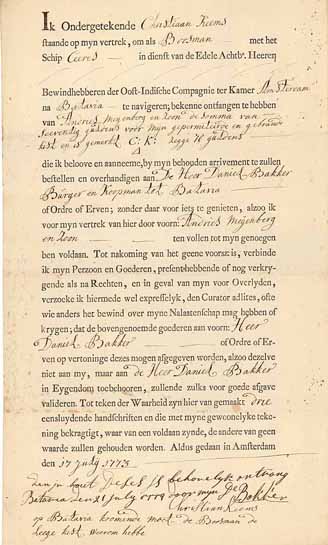 Ik Ondergetekende Christiaan Kiems
staande op myn vertrek, om als Boosman met het
Schip Ceres in dienst van de Edele Achtbe. Heeren
Bewindhebberen der Oost-Indische Compagnie ter Kamer Amsterdam
na Batavia te navigeren; bekenne ontfangen te hebben
van Andries Meijenberg en Zoon de somma van
Seeventig guldens voor mijn gepermiteerde en gebrande
kist en is gemerkt C: K: segge 70 guldens
die ik beloove en aanneeme, by myn behouden arrivement te zullen
bestellen en overhandigen aan De Heer Daniel Bakker
Burger en Koopman tot Batavia
of Ordre of Erven; zonder daar voor iets te genieten, alzoo ik
voor myn vertrek van hier door voorn: Andries Meijenberg
en Zoon ten vollen tot myn genoegen
ben voldaan. Tot nakoming van het geene voorsz: is, verbinde
ik myn Perzoon en Goederen, presenthebbende of nog verkry-
gende als na Rechten, en in geval van myn Overlyden,
verzoeke ik hiermede wel expresselyk, den Curator adlites, ofte
wie anders het bewind over myne Nalatenschap mag hebben of
krygen; dat de bovengenoemde goederen aan voorn: Heer
Daniel Bakker of Ordre of Er-
ven op vertoninge dezes mogen afgegeven worden, alzoo dezelve
niet aan my, maar aan de Heer Daniel Bakker
in Eygendom toebehooren, zullende zulks voor goede afgave
valideren. Tot teken der Waarheid zyn hier van gemaakt drie
eensluydende handschriften en die met myne gewoonelyke teke-
ning bekragtigt, waar van een voldaan zynde, de andere van geen
waarde zullen gehouden worden. Aldus gedaan in Amsterdam
den 17 July 1773
den in houd deses is behoorlijk ontvang
Batavia den 21 July voor mijn Bakker
Christiaan Kiems
op Batavia koomende moet de Boosman de
leege kist weerom hebbe